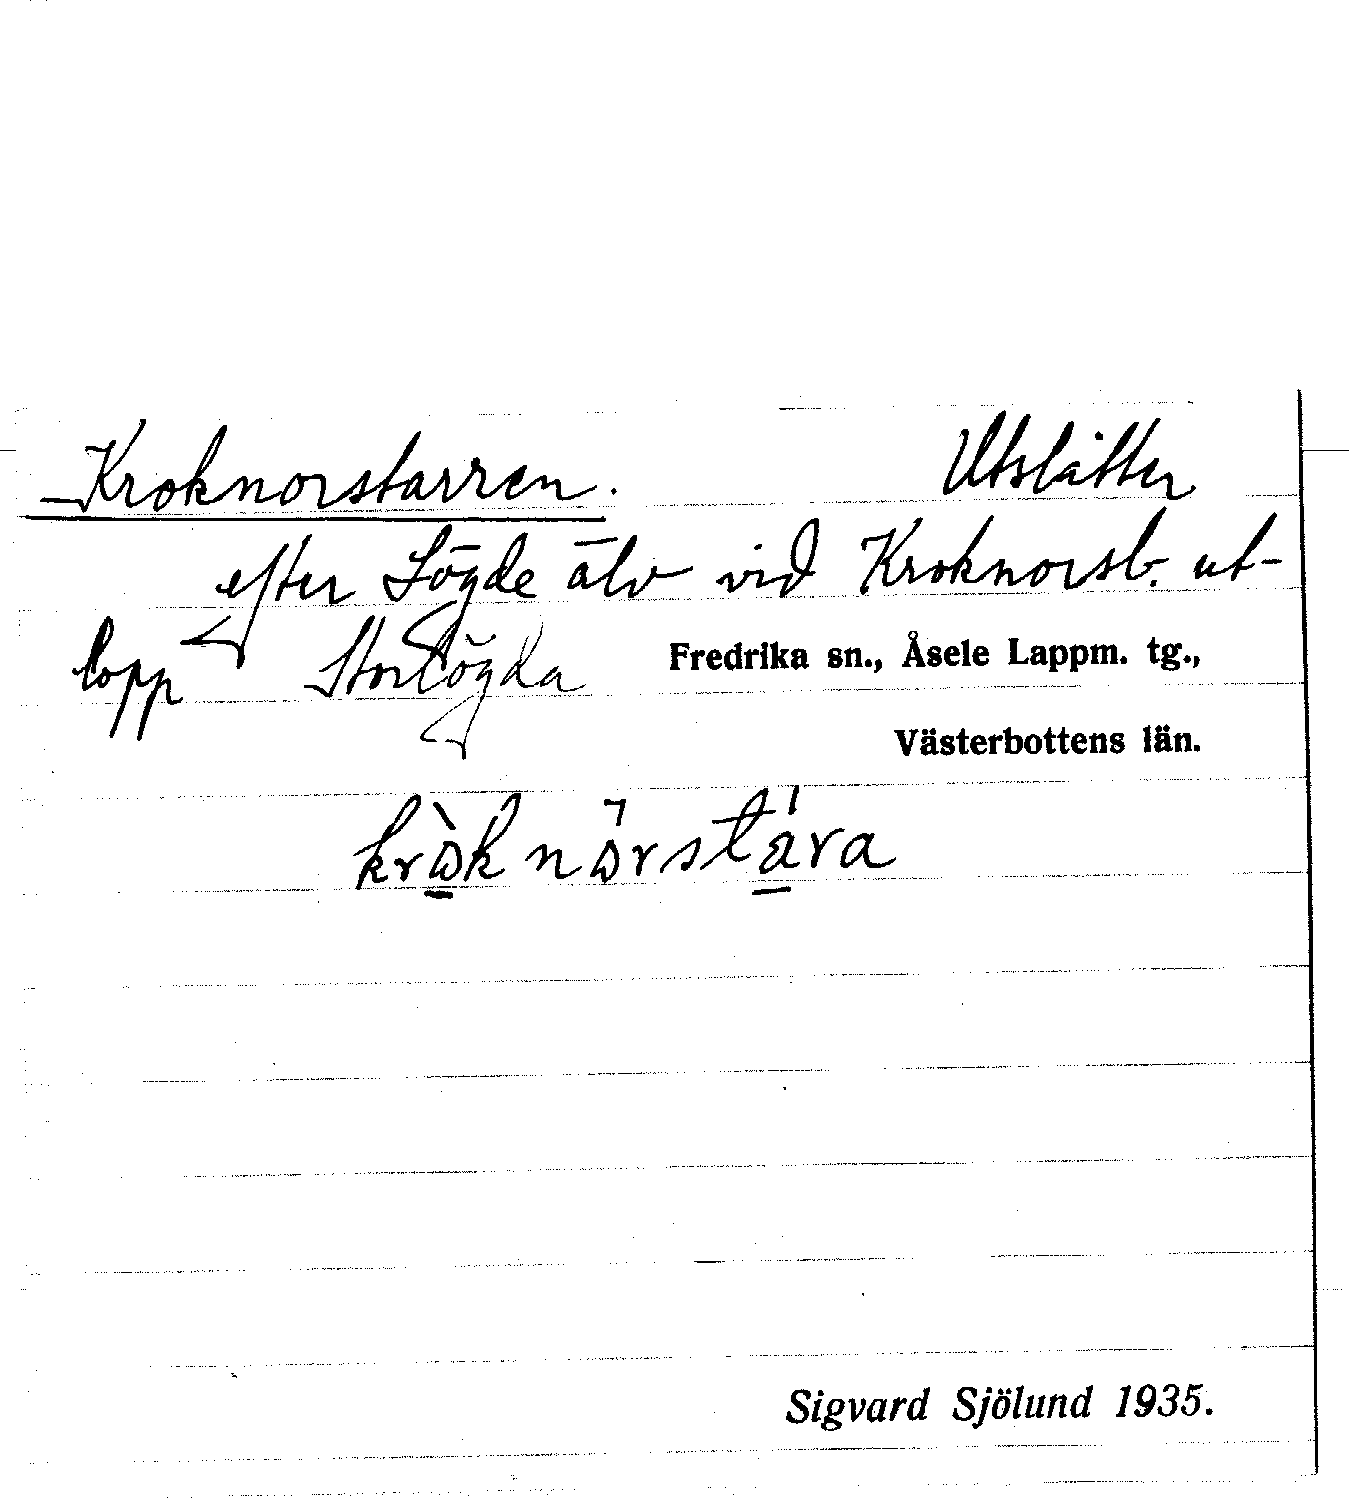 Kroknorstarren. Utslåtter
efter Lögde älv vid Kroknorsb. ut-
lopp Storlögda Fredrika sn., Åsele Lappm. tg.,
Västerbottens län.
Sigvard Sjölund 1935.